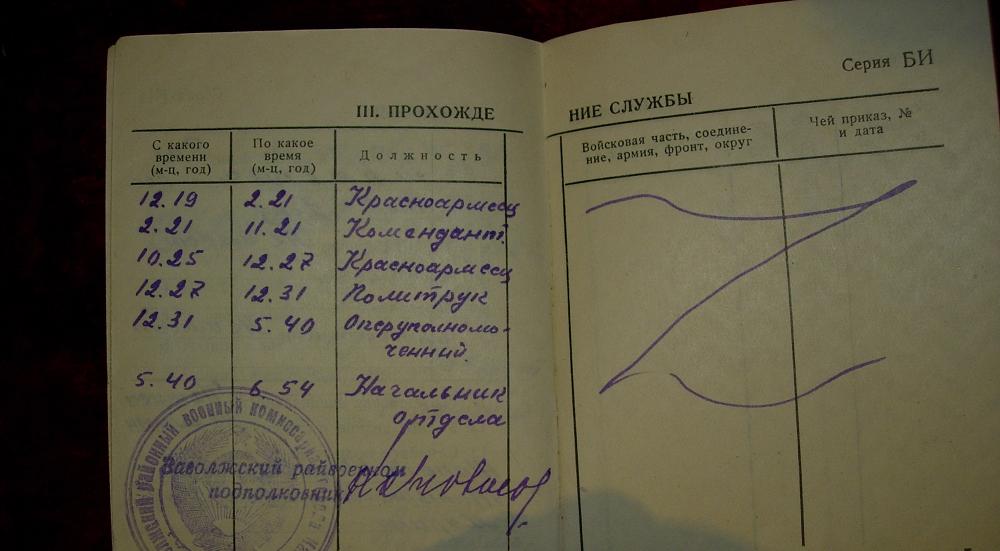 Серия БИ
III. ПРОХОЖДЕ НИЕ СЛУЖБЫ
С какого времени (м-ц, год)
По какое время (м-ц, год)
Должность
Войсковая часть, соедине-
ние, армия, фронт, округ
Чей приказ, №
и дата
12.19 2.21 Красноармеец
2.21 11.21 Комендант.
10.25 12.27 Красноармеец
12.27 12.31 Политрук
12.31 5.40 Оперуполномо-
ченний.
5.40 6.54 Начальник
отдела
Заволжский райвоенком
подполковник
районный военный комиссариат